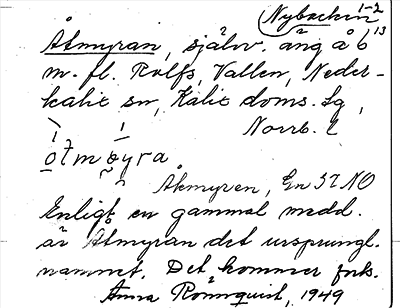 Nybäcken 1-2
Åtmyran, självv. äng å b 13
m. fl. Rolfs, Vallen, Neder-
kalix sn, Kalix doms. lg,
Norrb. l
òtmøyra
Åkmyren, En 37 NO
Enligt en gammal medd.
är Åtmyran det ursprungl.
namnet. Det kommer fork.
Anna Rönnquist, 1949